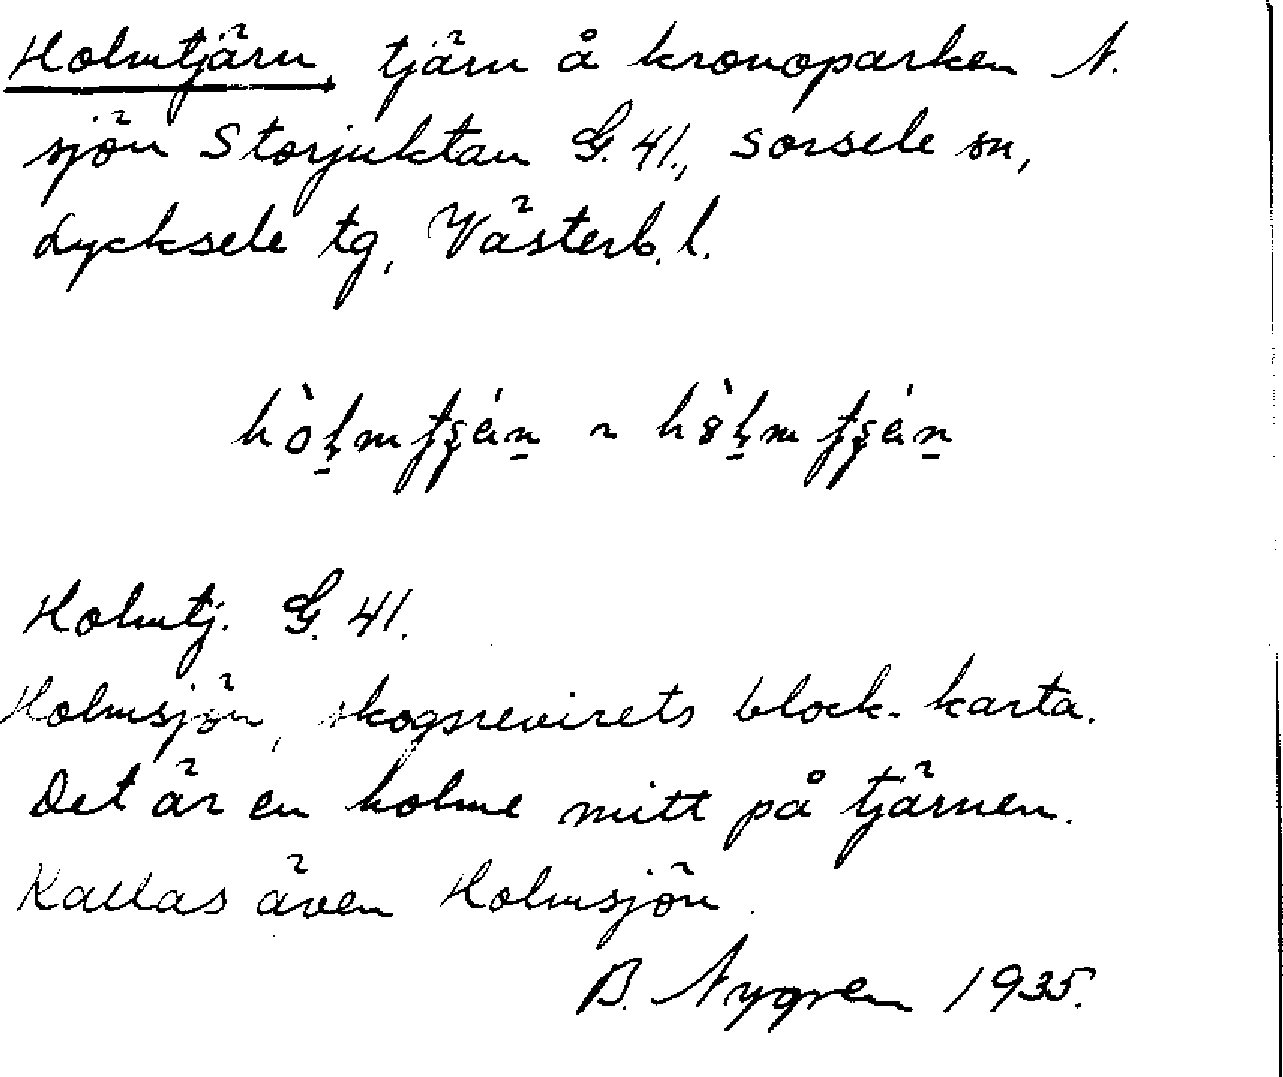 Holmtjärn, tjärn å kronoparken N.
sjön Storjuktan G. 41., Sorsele sn,
Lycksele tg, Västerb. l.
Holmtj. G. 41.
Holmsjön, skogsrevirets block-karta.
Det är en holme mitt på tjärnen.
Kallas även Holmsjön.
B. Nygren 1935.